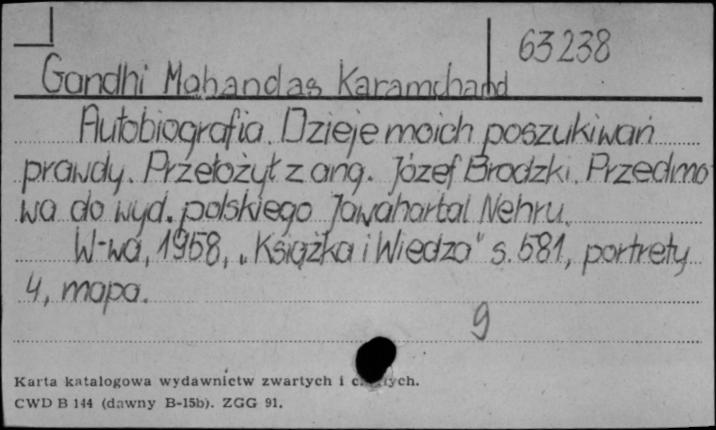 63238
Gandhi Mahandas Karamchand
Autobiografia. Dzieje moich poszukiwań
prawdy. Przełożył z ang. Józef Brodzki. Przedmo-
wa do wyd. polskiego Jawahartal Nehru.
W-wa, 1958, "Książka i Wiedza" s. 581, portrety
4, mapa.
9
Karta katalogowa wydawnictw zwartych i
CWD B 144 (dawny B-15b). ZGG 91.